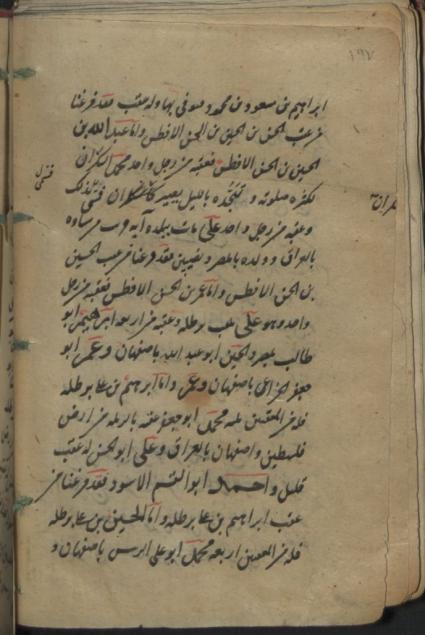 ١٩٧
ابراهيم بن مسعود بن محمد وصوفى بها وله عقب فقد فرغنا
من عقب الحسن بن الحسين بن الحسن الافطس واما عبد الله بن
الحسين بن الحسن الافطس فعقبه من رجل واحد محمد السكران
لكثرة صلوته و تهجده بالليل يصير كالسكران فسمى بذلك
و عقبه من رجل واحد على مات ببلده آبه قرب من ساوه
بالعراق و ولده بالمصر و نصيبين فقد فرغنا من عقب الحسين
بن الحسن الافطس واما عمر بن الحسن الافطس فعقبه من رجل
واحد وهو على يلقب برطله وعقبه من اربعه ابراهيم ابو
طالب بمصر والحسين ابو عبد الله باصفهان و عمر ابو
جعفر باصفهان وعمر واما ابرهيم بن على برطله
فله من المعقبين ثلثه محمد ابو جعفر عقبه بالرمله من ارض
فلسطين واصفهان بالعراق وعلى ابو الحسن له عقب
قليل واحمد ابو القسم الاسود فقد فرغنا من
عقب ابراهيم بن على برطله واما الحسين بن على برطله
فله من المعقبين اربعه محمد ابو على ابرص باصفهان و